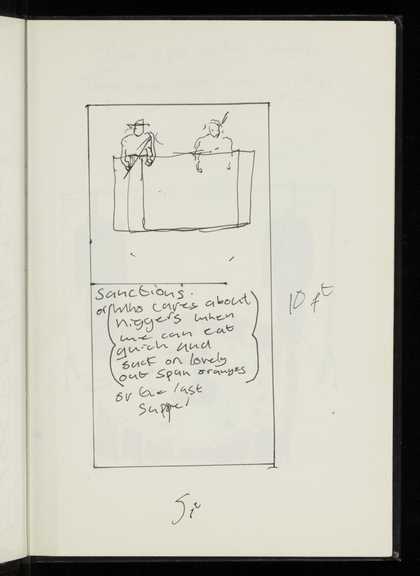 Sanctions.
or Who cares about
niggers when
we can eat
quich and
suck on lovely
out span oranges
or the last
supper
10 ft